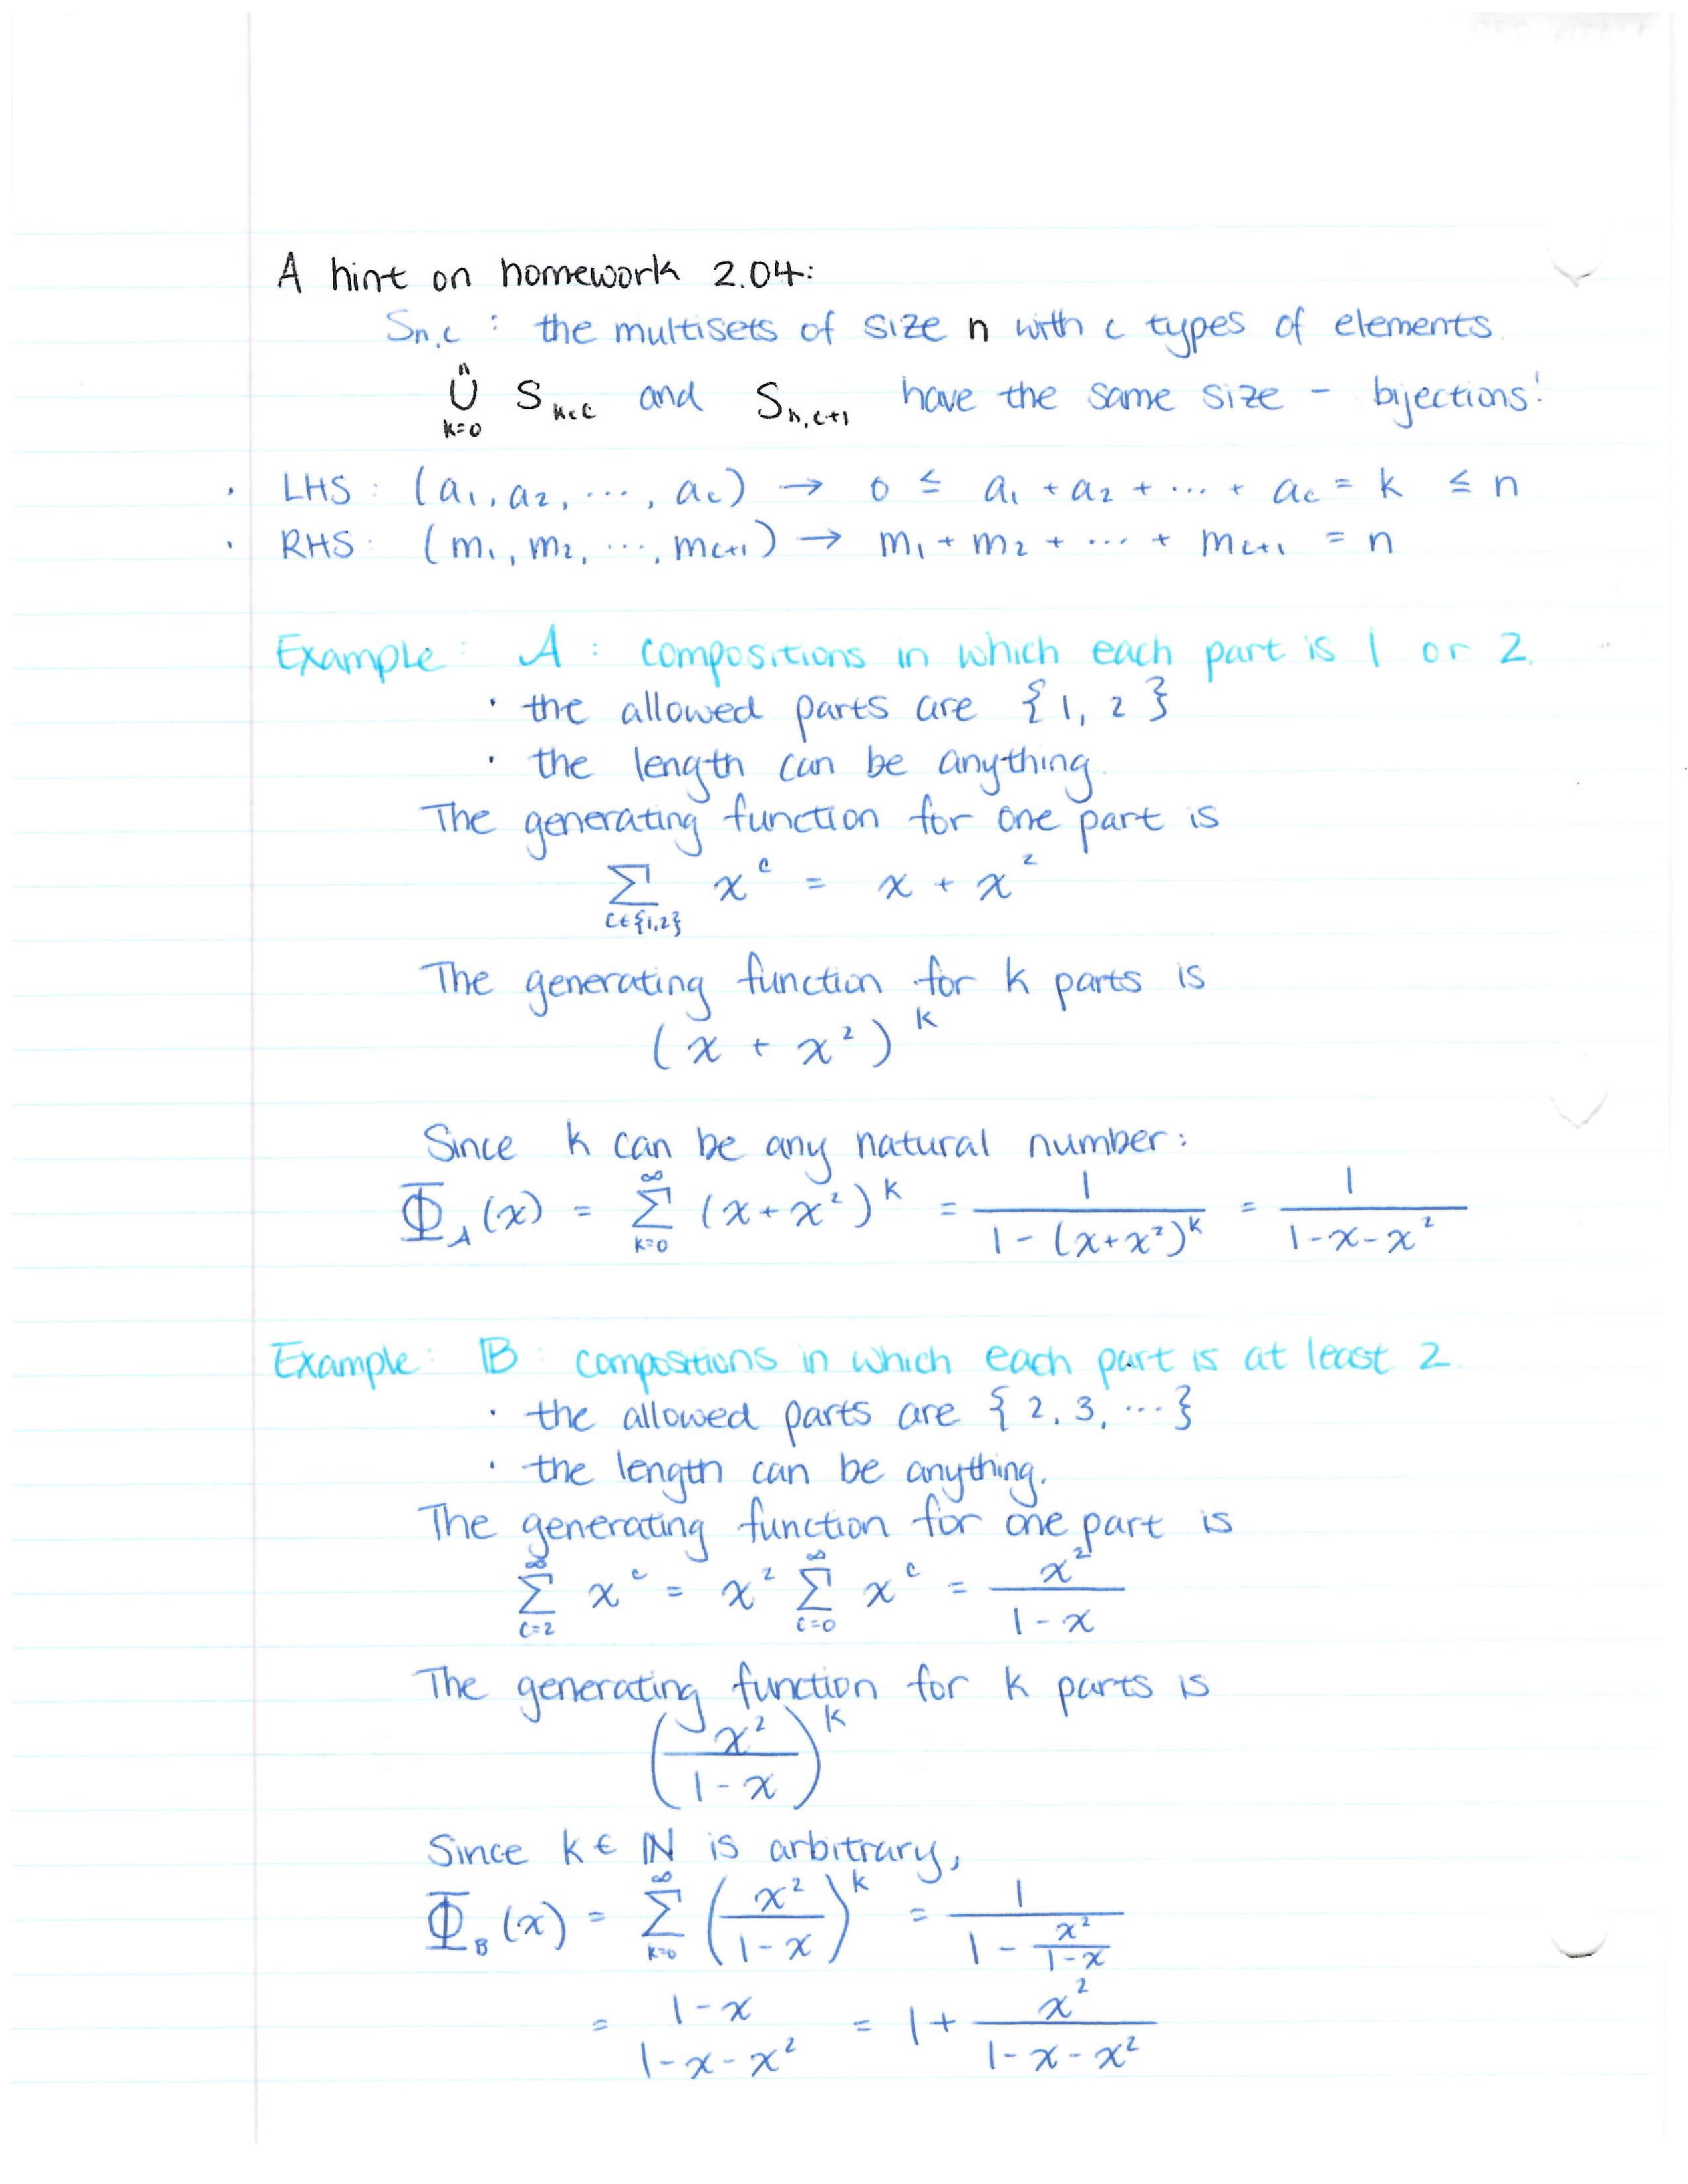 A hint on homework 2.04:
Sn,c : the multisets of size n with c types of elements.
n⋃k=0 Sk,c and Sn,c+1 have the same size - bijections!
· LHS: (a₁, a₂, ..., ac) → 0 ≤ a₁ + a₂ + ... + ac = k ≤ n
· RHS: (m₁, m₂, ..., mc+1) → m₁ + m₂ + ... + mc+1 = n
Example: A : compositions in which each part is 1 or 2.
· the allowed parts are {1, 2}
· the length can be anything.
The generating function for one part is
Σ c∈{1,2} x^c = x + x²
The generating function for k parts is
(x + x²)^k
Since k can be any natural number:
Φ_A(x) = ∞Σk=0 (x+x²)^k = 1/(1-(x+x²)^k) = 1/(1-x-x²)
Example: B : compositions in which each part is at least 2
· the allowed parts are {2, 3, ...}
· the length can be anything.
The generating function for one part is
∞Σc=2 x^c = x² ∞Σc=0 x^c = x²/(1-x)
The generating function for k parts is
(x²/(1-x))^k
Since k ∈ ℕ is arbitrary,
Φ_B(x) = ∞Σk=0 (x²/(1-x))^k = 1/(1 - x²/(1-x))
= (1-x)/(1-x-x²) = 1 + x²/(1-x-x²)